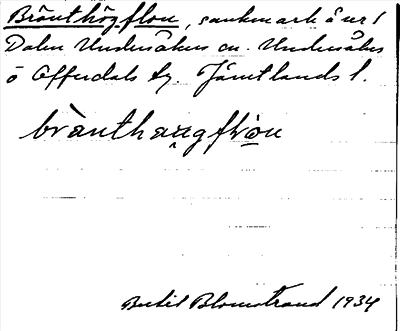 Brönthögflon, sankmark å nr 1
Dalen Undersåkers sn. Undersåkers
o Offerdals tg. Jämtlands l.
brànthæ̣ŋgflòọn
Bertil Blomstrand 1934